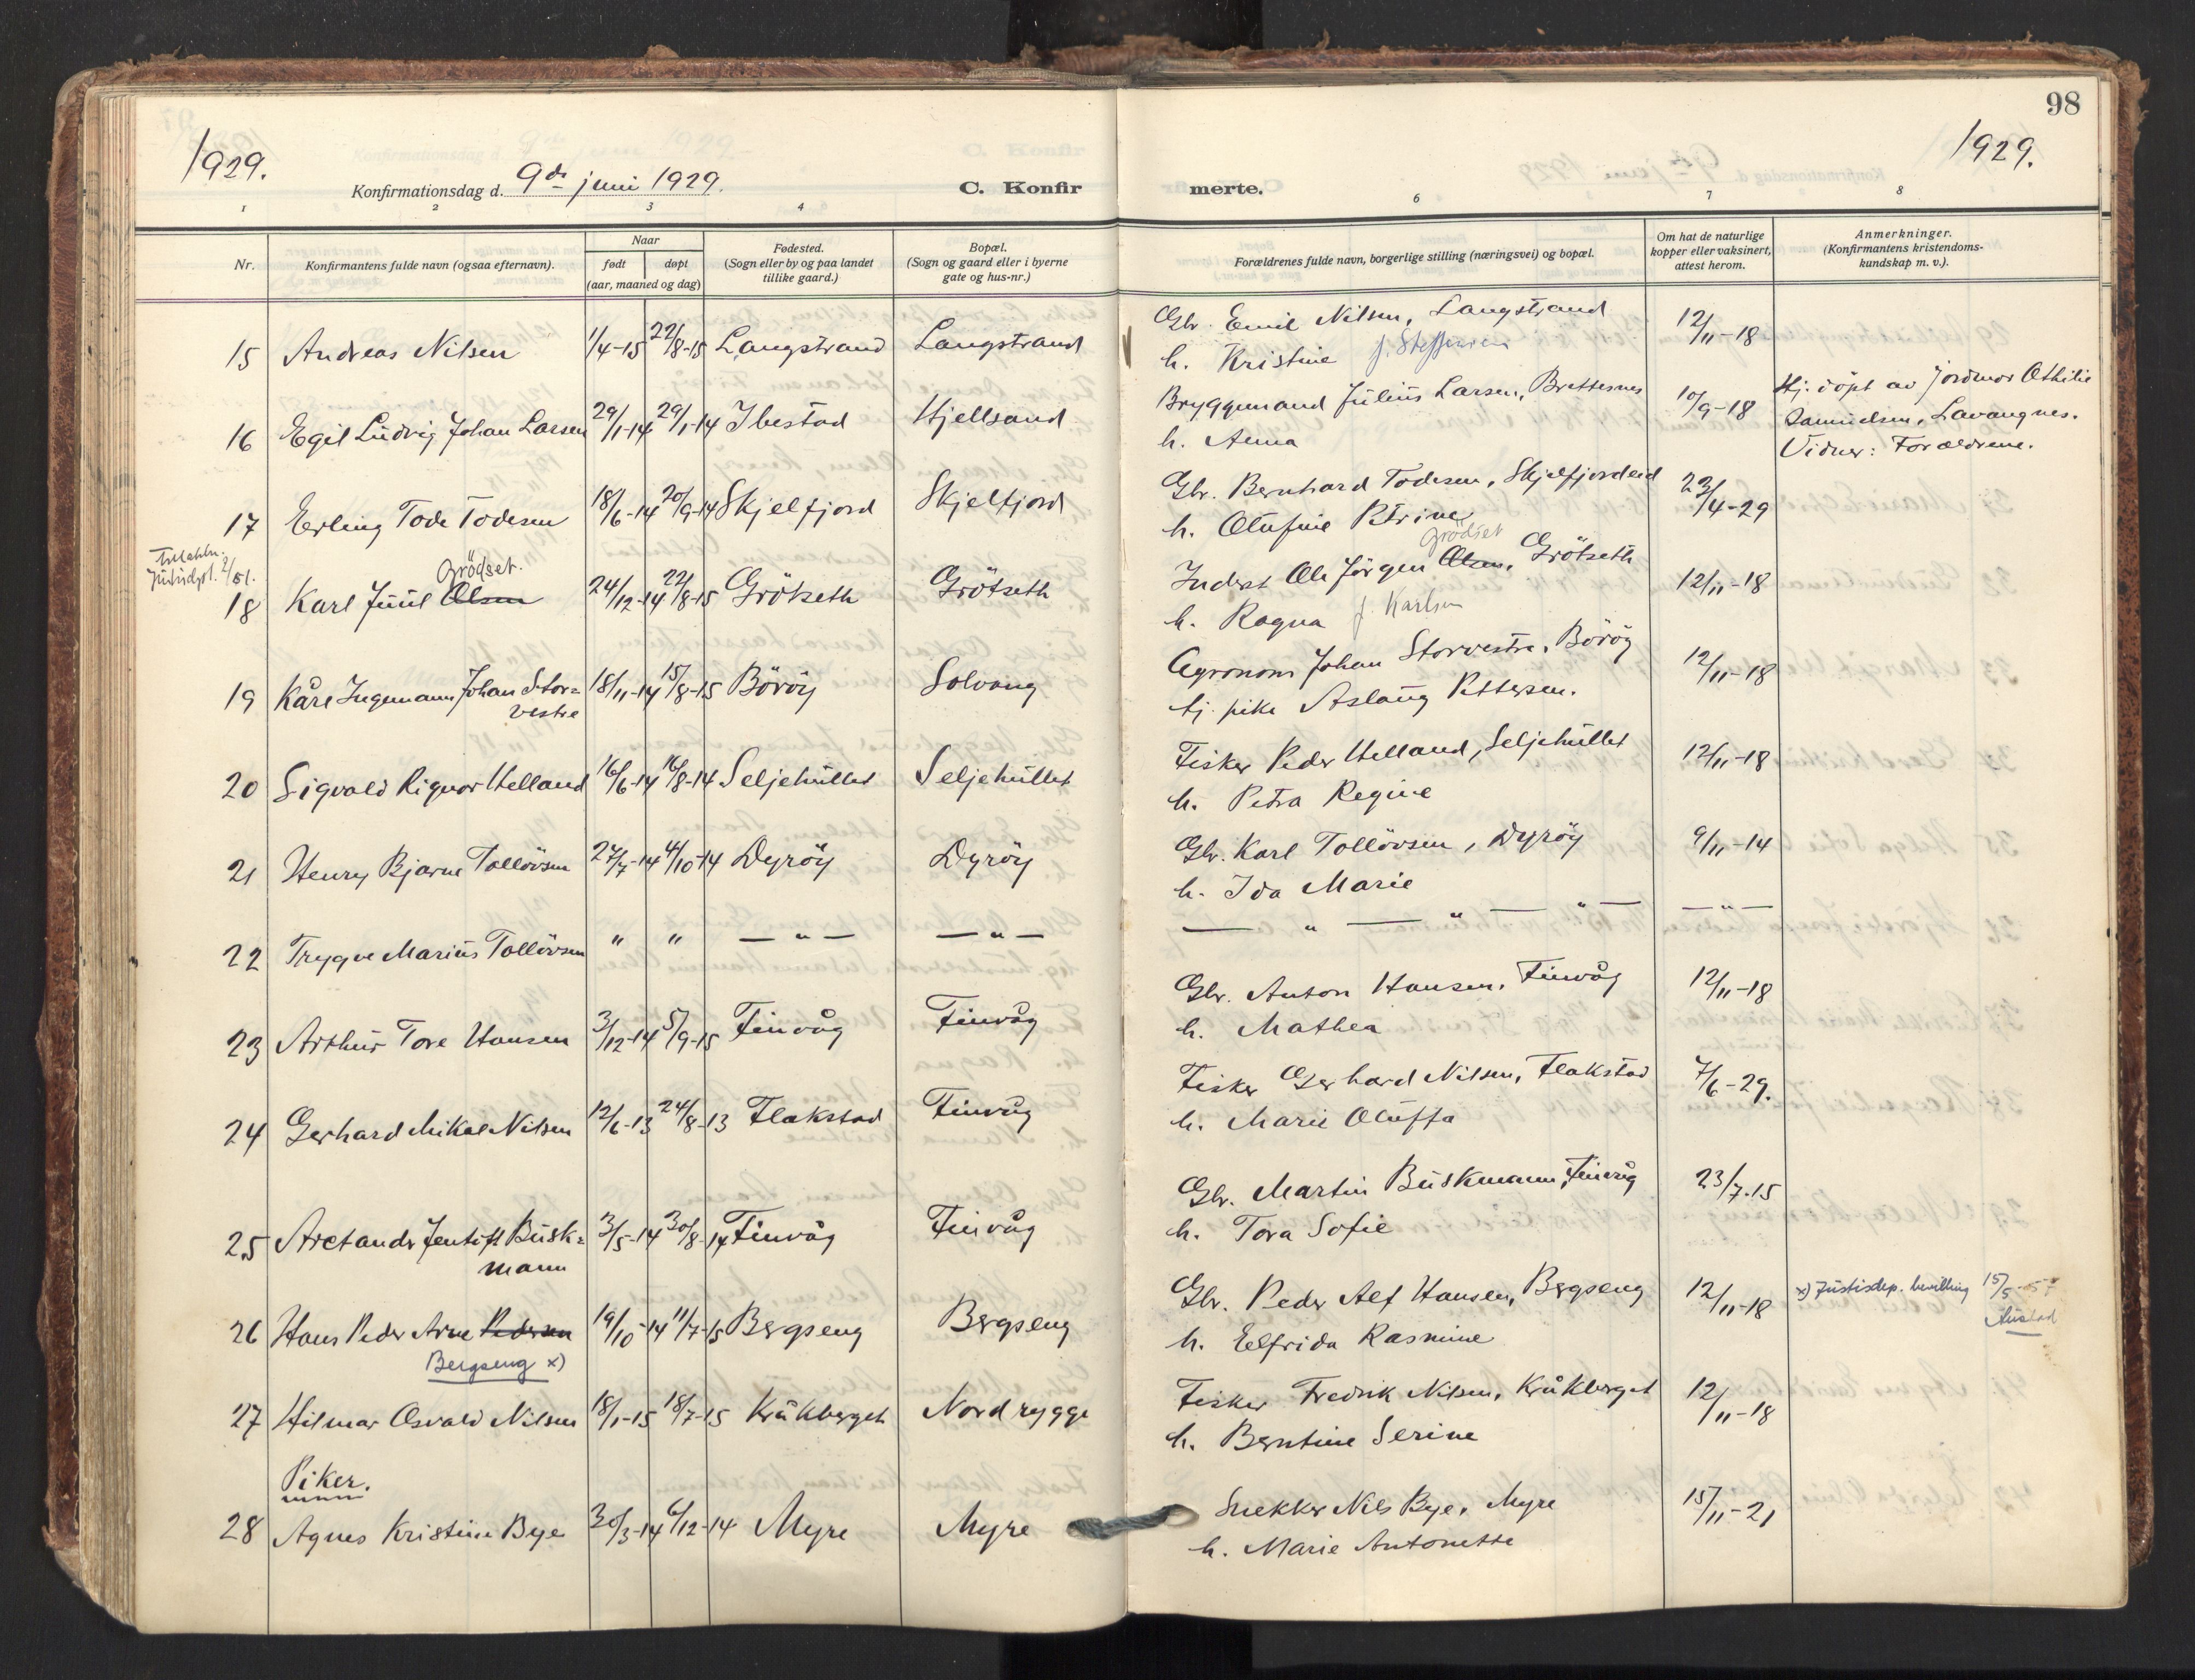 98
1929.
1929.
Konfirmationsdag d. 9de juni 1929.
C. Konfirmerte.
1 2 3 4 6 7 8
Nr.
Konfirmantens fulde navn (ogsaa efternavn).
Naar
født døpt
(aar, maaned og dag)
Fødested.
(Sogn eller by og paa landet
tillike gaard.)
Bopæl.
(Sogn og gaard eller i byerne
gate og hus-nr.)
Forældrenes fulde navn, borgerlige stilling (næringsvei) og bopæl.
Om hat de naturlige
kopper eller vaksinert,
attest herom.
Anmerkninger.
(Konfirmantens kristendoms-
kundskap m. v.).
15 Andreas Nilsen 1/4-15 22/8-15 Langstrand Langstrand Gbr. Emil Nilsen, Langstrand 12/11-18
h. Kristine f. Steffensen
16 Egil Ludvig Johan Larsen 29/1-14 29/1-14 Ibestad Hjellsand Bryggemand Julius Larsen, Brettesnes 10/9-18 Hj. döpt av jordmor Othilie
h. Anna Samuelsen, Lavangnes.
Vidner: Forældrene.
17 Erling Tode Todesen 18/6-14 20/9-14 Skjelfjord Skjelfjord Gbr. Bernhard Todesen, Skjelfjordeid 23/4-29
h. Olufine Petrine
2/51.
Grödset. Grödset
18 Karl Juul Olsen 24/12-14 22/8-15 Grötseth Grötseth Inderst Ole Jörgen Olsen, Grötseth 12/11-18
h. Ragna f. Karlsen
19 Kåre Ingemann Johan Stor= 18/11-14 15/8-15 Böröy Solvang Agronom Johan Storvestre, Böröy 12/11-18
vestre tj. pike Aslaug Pettersen.
20 Sigvald Rignor Helland 16/6-14 16/8-14 Seljehullet Seljehullet Fisker Peder Helland, Seljehullet 12/11-18
h. Petra Regine
21 Henry Bjarne Tollövsen 27/7-14 4/10-14 Dyröy Dyröy Gbr. Karl Tollövsen, Dyröy 9/11-14
h. Ida Marie
22 Trygve Marius Tollövsen " " — " — — " — — " — " — " — — " —
23 Arthur Tore Hansen 3/12-14 5/9-15 Finvåg Finvåg Gbr. Anton Hansen, Finvåg 12/11-18
h. Mathea
24 Gerhard Mikal Nilsen 12/6-13 24/8-13 Flakstad Finvåg Fisker Gerhard Nilsen, Flakstad 7/6-29.
h. Marie Oluffa
25 Aretander Jentoft Busk= 3/5-14 30/8-14 Finvåg Finvåg Gbr. Martin Buskmann, Finvåg 23/7-15
mann h. Tora Sofie
26 Hans Peder Arne Pedersen 19/10-14 11/7-15 Bergseng Bergseng Gbr. Peder Alf Hansen, Bergseng 12/11-18 x) Justisdep. bevilling 15/5-
Bergseng x) h. Elfrida Rasmine
27 Hilmar Osvald Nilsen 18/1-15 18/7-15 Kråkberget Nordrygge Fisker Fredrik Nilsen, Kråkberget 12/11-18
h. Berntine Serine
Piker.
28 Agnes Kristine Bye 30/3-14 6/12-14 Myre Myre Snekker Nils Bye, Myre 15/11-21
h. Marie Antonette